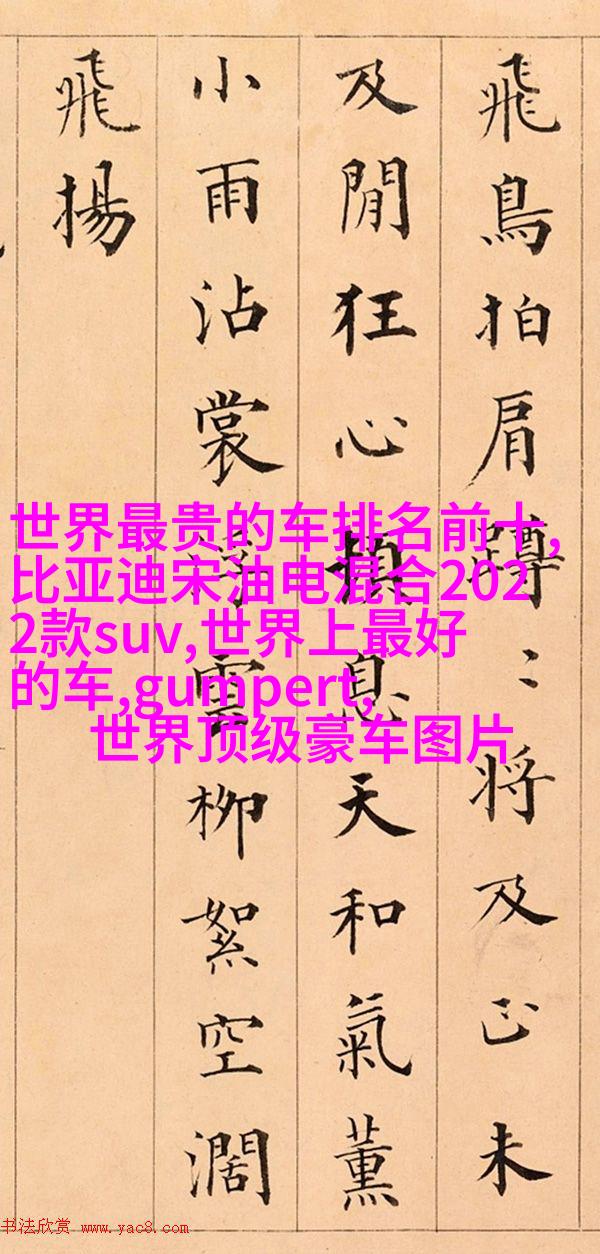 飛鳥拍肩蹲〻將及正未
及閒狂心頓息天和氣薰
小雨沾裳雲柳絮空濶
飛揚
世界最贵的车排名前十,
比亚迪宋油电混合202
2款suv,世界上最好
的车,gumpert,
世界顶级豪车图片
书法欣赏 www.yac8.com